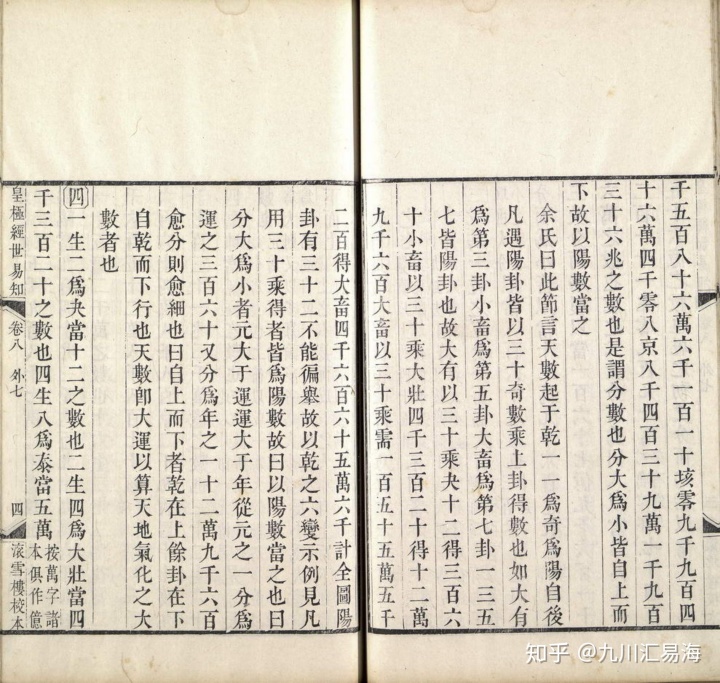 千五百八十六萬六千一百一十垓零九千九百四
十六萬四千零八京八千四百三十九萬一千九百
三十六兆之數也是謂分數也分大爲小皆自上而
下故以陽數當之
余氏曰此節言天數起于乾一一爲奇爲陽自後
凡遇陽卦皆以三十奇數乘上卦得數也如大有
爲第三卦小畜爲第五卦大畜爲第七卦一三五
七皆陽卦也故大有以三十乘夬十二得三百六
十小畜以三十乘大壯四千三百二十得十二萬
九千六百大畜以三十乘需一百五十五萬五千
二百得大畜四千六百六十五萬六千計全圖陽
卦有三十二不能徧舉故以乾之六變示例見凡
用三十乘得者皆爲陽數故曰以陽數當之也曰
分大爲小者元大于運運大于年從元之一分爲
運之三百六十又分爲年之一十二萬九千六百
愈分則愈細也曰自上而下者乾在上餘卦在下
自乾而下行也天數卽大運以算天地氣化之大
數者也
四一生二爲夬當十二之數也二生四爲大壯當四
千三百二十之數也四生八爲泰當五萬
按萬字諸
本俱作億
皇極經世易知 卷八 外七 四 滚雪樓校本
知乎 @九川汇易海